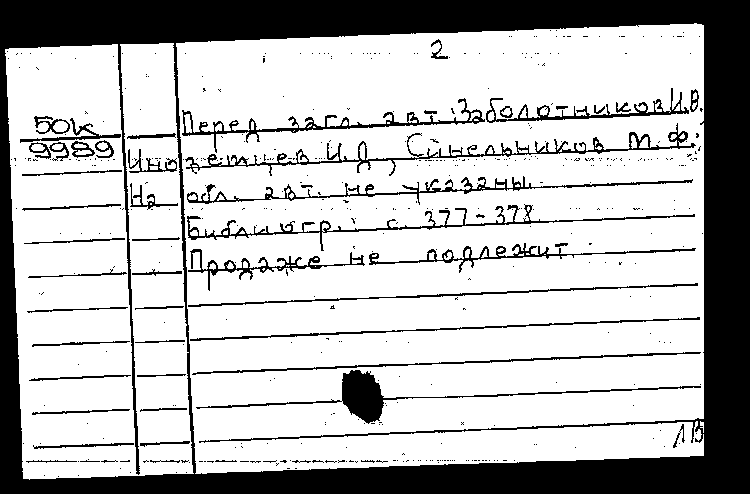 2
50К Перед загл. авт.: Заболотников И.В.
9989 Иноземцев И.Д, Синельников М.Ф.;
На обл. авт. не указаны.
Библиогр.: с. 377-378.
Продаже не подлежит.
ЛВ